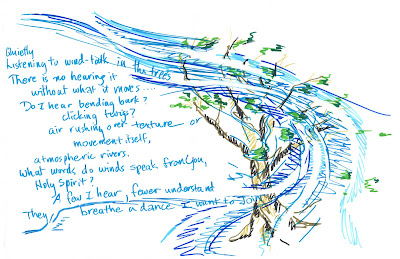 Quietly
Listening to wind-talk in the trees
There is no hearing it
without what it moves....
Do I hear bending bark?
clicking twig?
air rushing over texture or
movement itself,
atmospheric rivers.
What words do winds speak from You,
Holy Spirit?
A few I hear, fewer understand
They breathe a dance I want to join